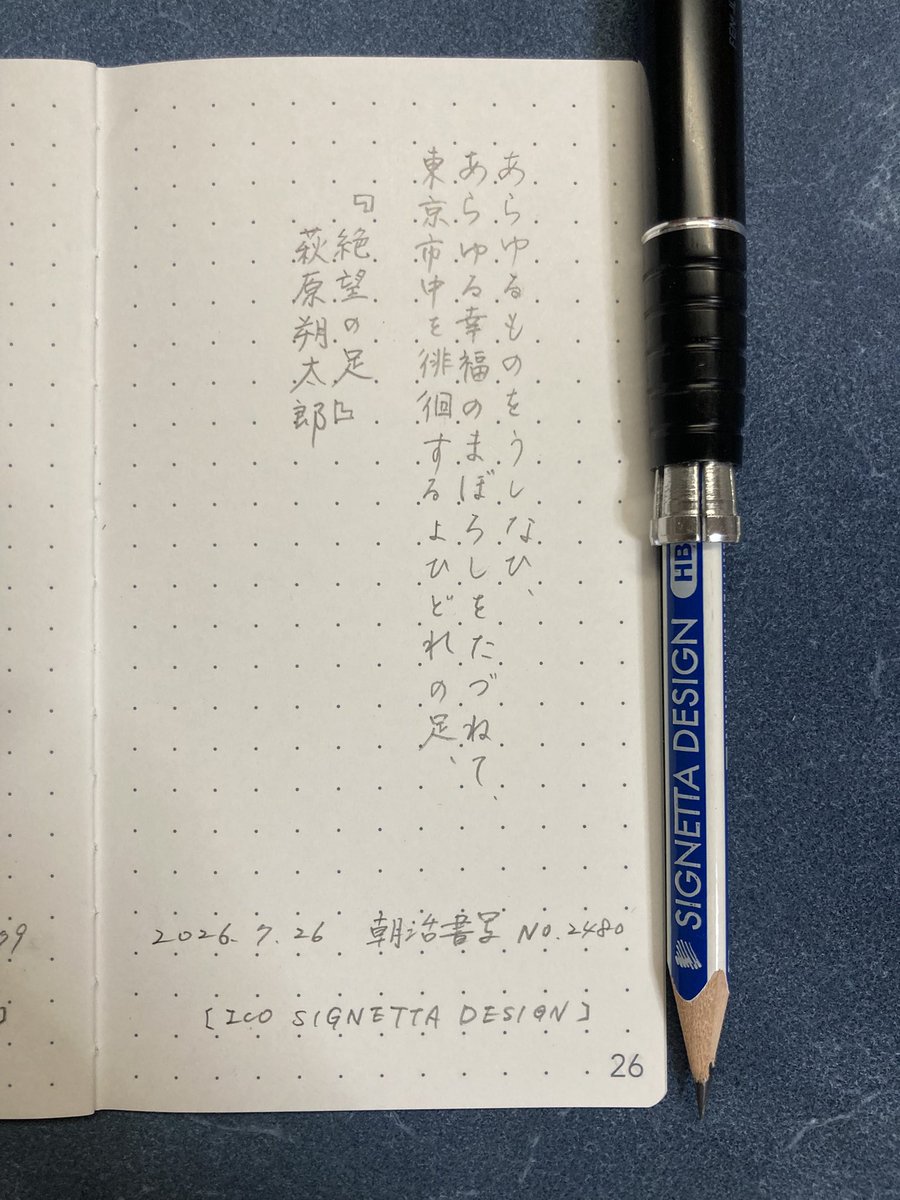 あらゆるものをうしなひ、
あらゆる幸福のまぼろしをたづねて、
東京市中を徘徊するよひどれの足、
『絶望の足』
萩原朔太郎
2026.7.26 朝活書写 No.2480
[ICO SIGNETTA DESIGN]
26
SIGNETTA DESIGN HB